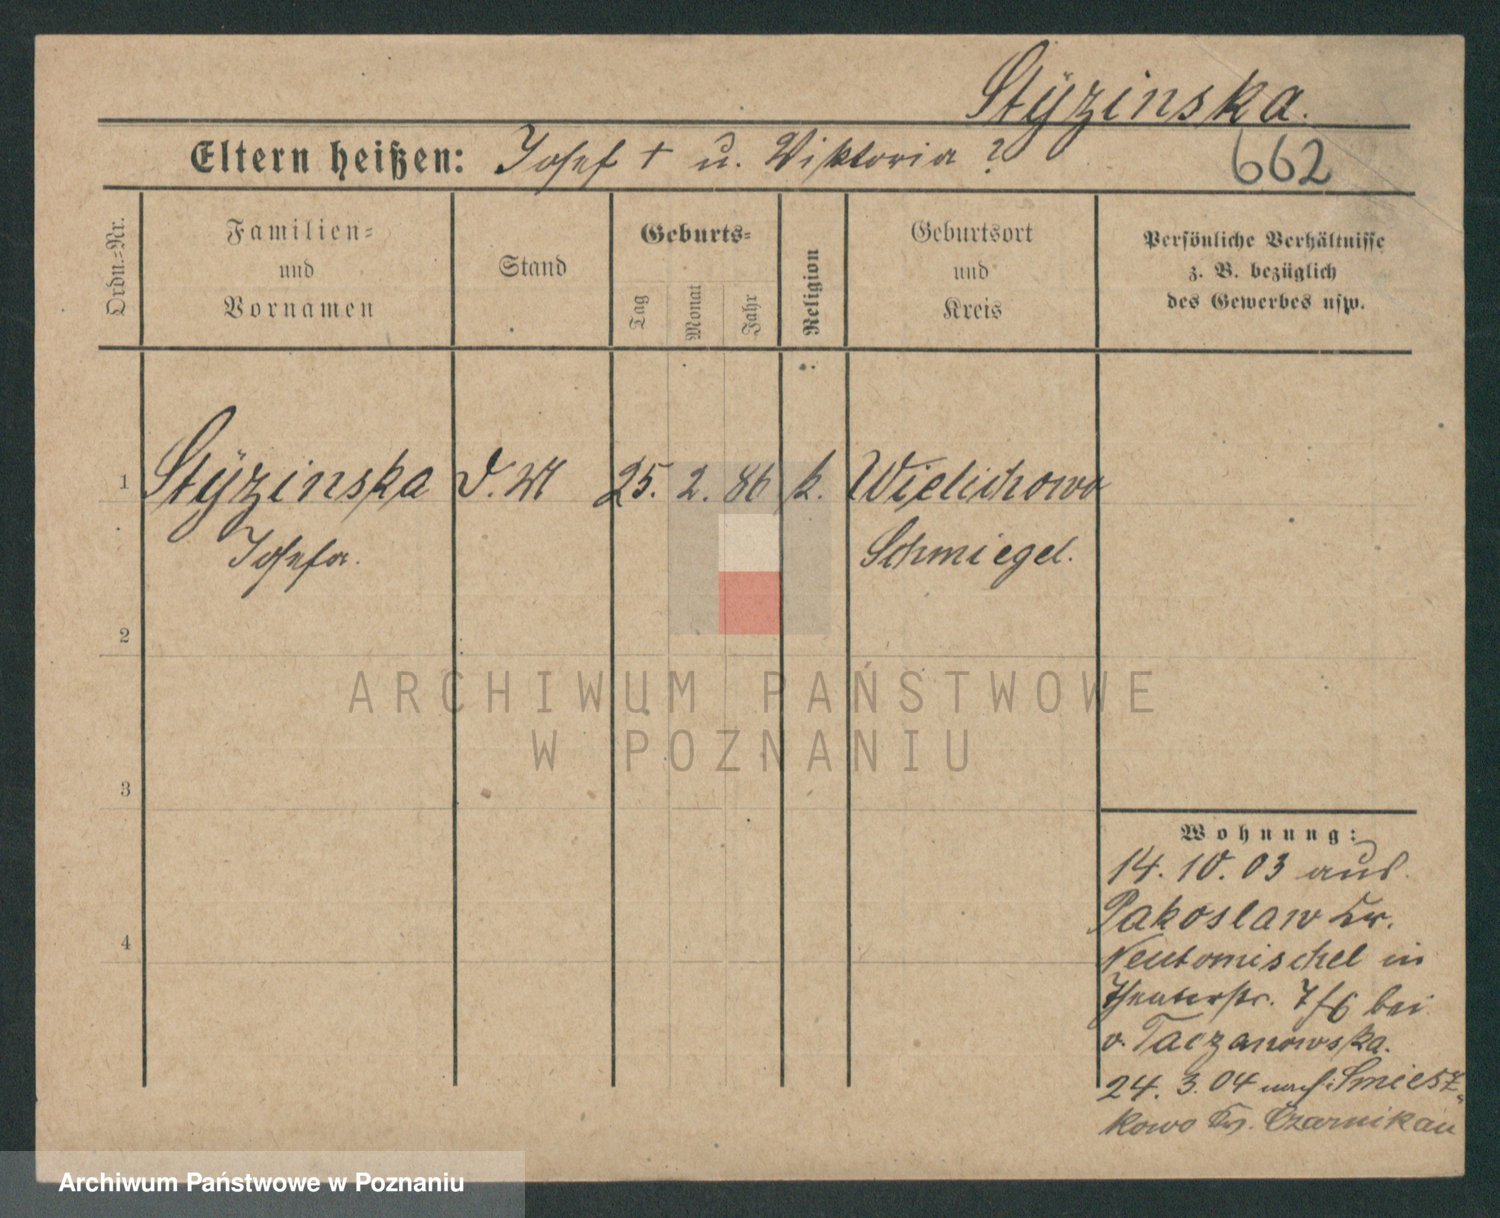 Styzinska.
Eltern heißen: Josef + u. Wiktoria ?
662
Ordn.-Nr.
Familien-
und
Vornamen
Stand
Geburts-
Tag
Monat
Jahr
Religion
Geburtsort
und
Kreis
Persönliche Verhältnisse
z. B. bezüglich
des Gewerbes usw.
1
Stÿzinska
Josefa.
D. M
25. 2. 86
k.
Wielichowo
Schmiegel.
2
3
4
Wohnung:
14. 10. 03 aus
Pakoslaw Kr.
Neutomischel in
Theaterstr. 7/6 bei
v. Taczanowska.
24. 3. 04 nach Smiesz-
kowo Kr. Czarnikau
ARCHIWUM PAŃSTWOWE
W POZNANIU
Archiwum Państwowe w Poznaniu